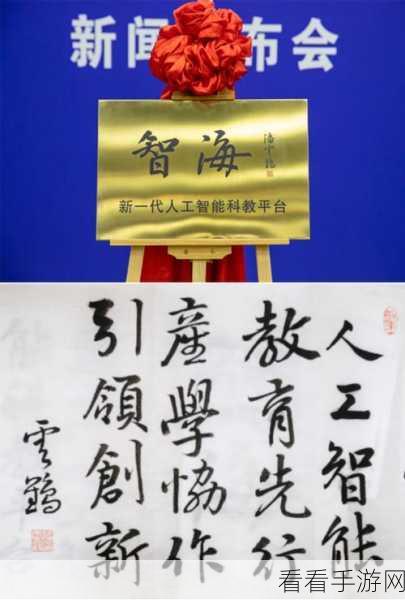 新闻布会
智海
潘云鹤
新一代人工智能科教平台
人工智能
教育先行
產學協作
引領創新
云鶴
看看手游网